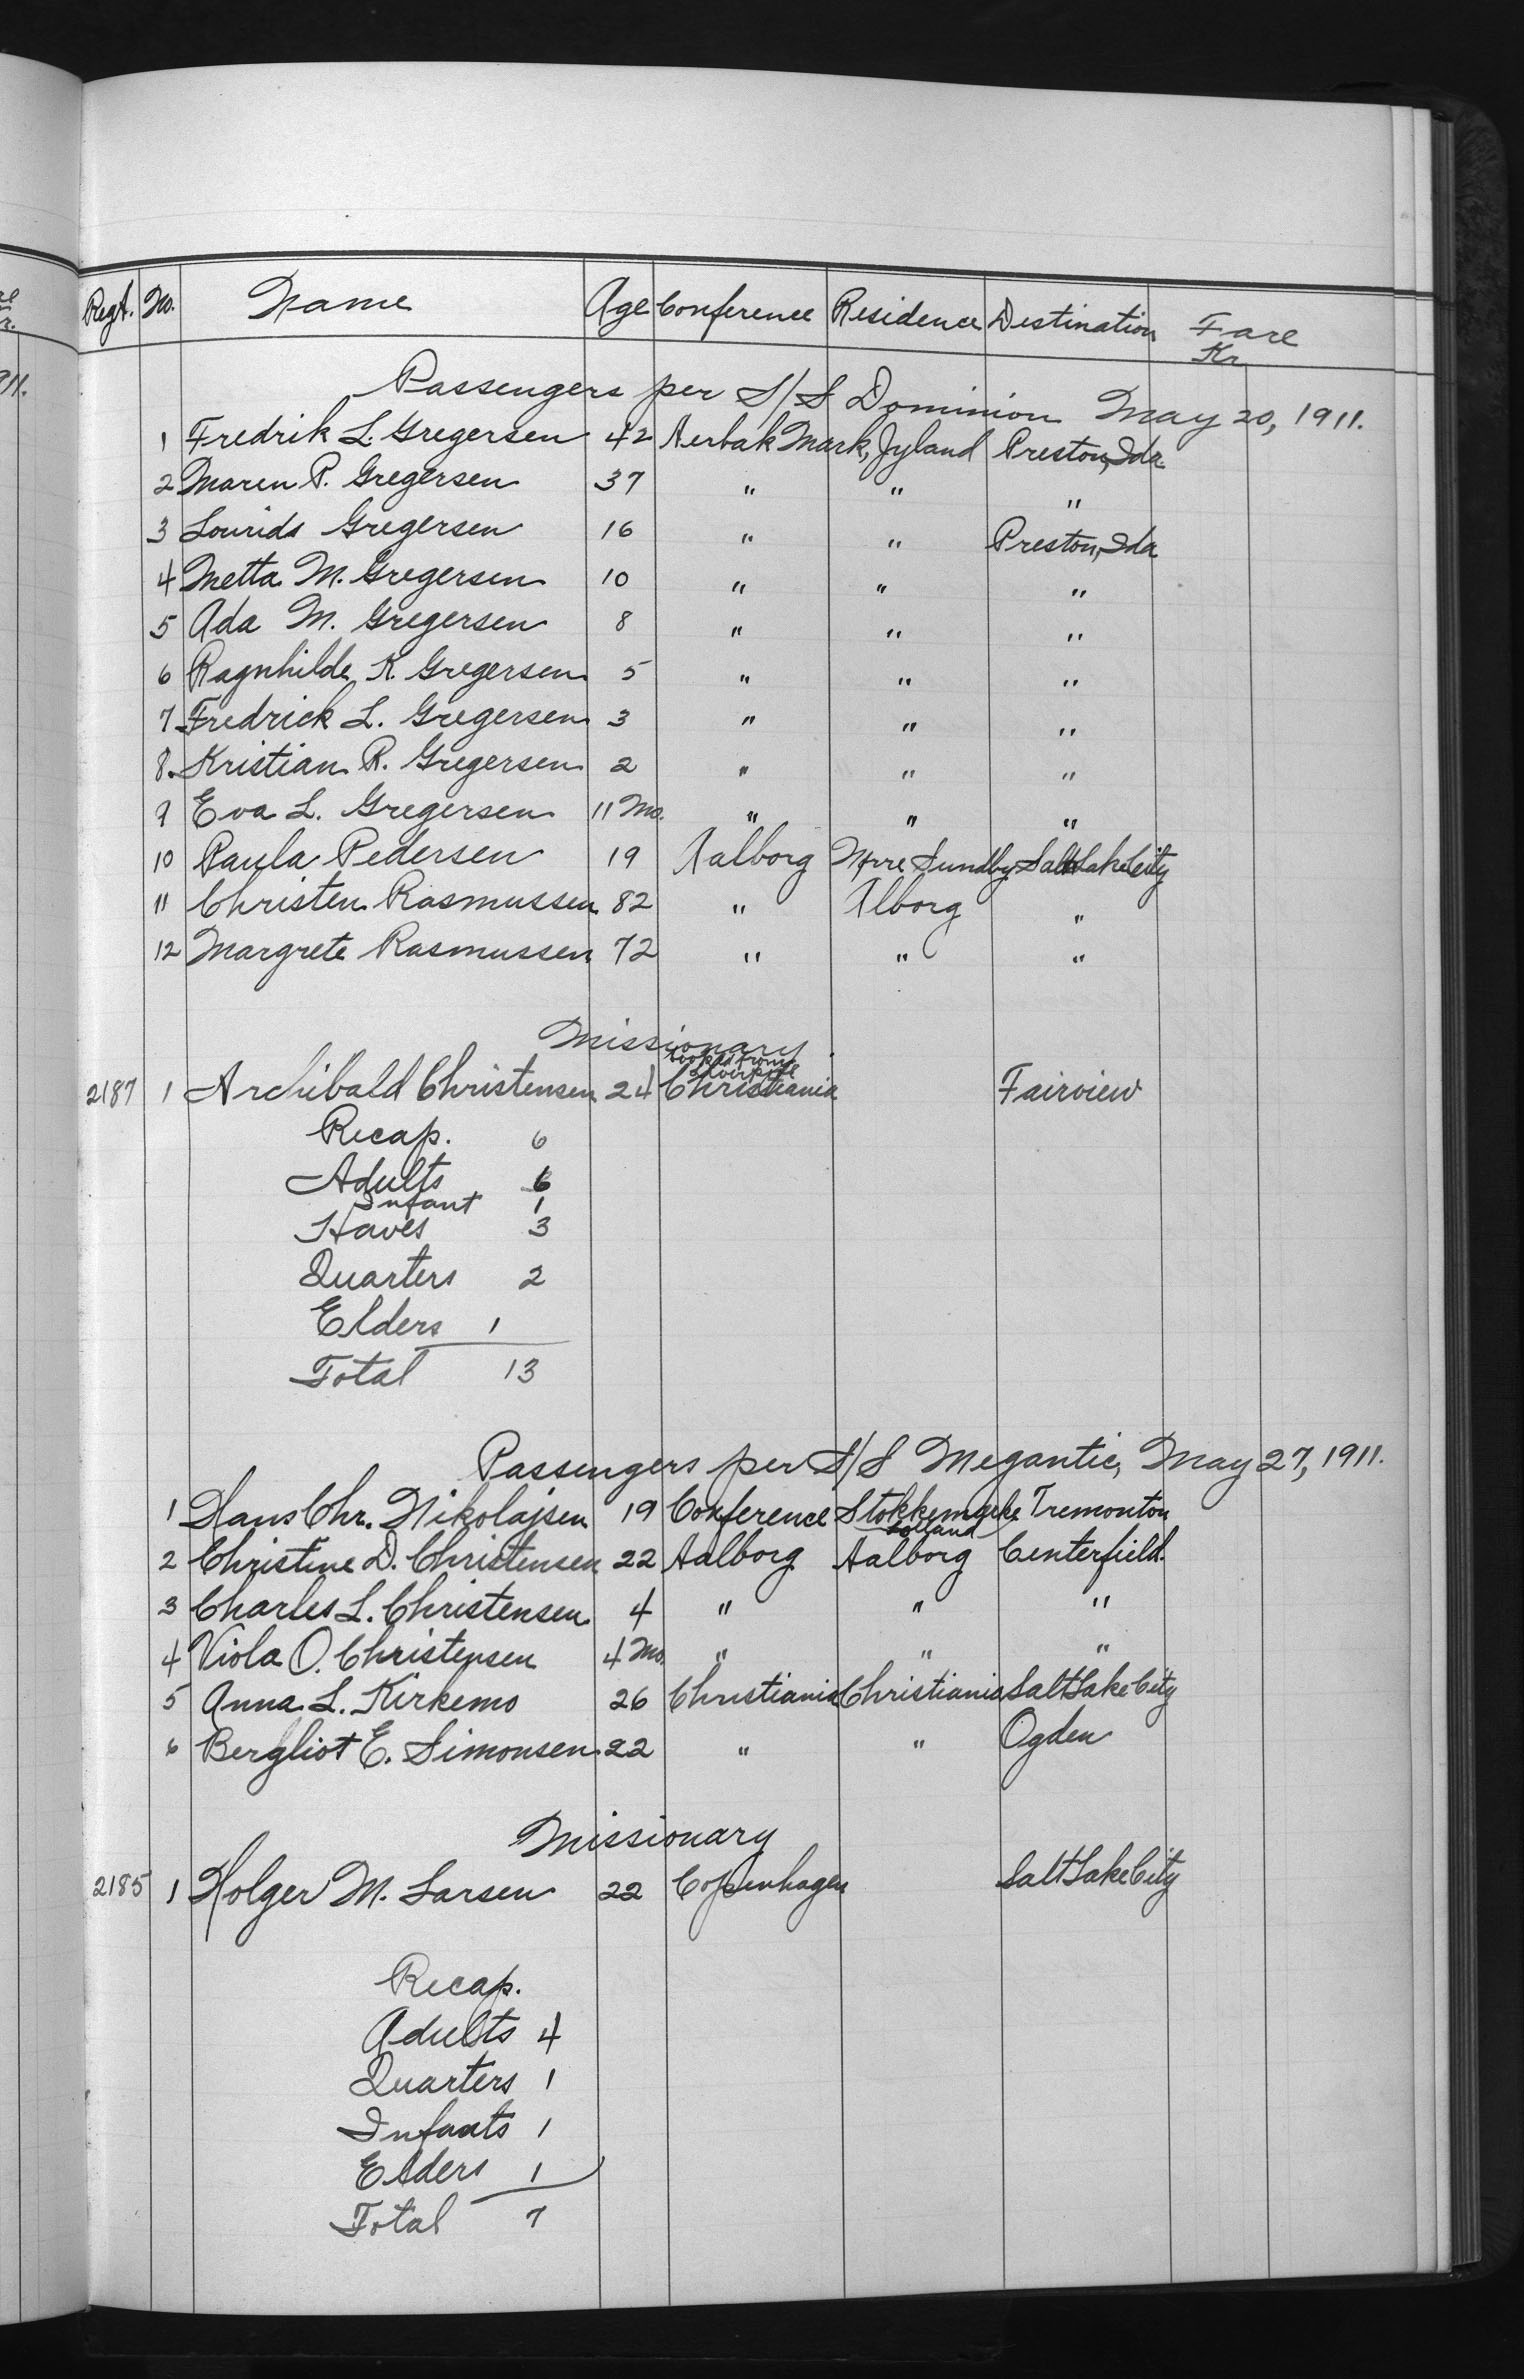 Regt. No. Name Age Conference Residence Destination Fare
Kr.
Passengers per S/S Dominion May 20, 1911.
1 Fredrik L. Gregersen 42 Aerbak Mark, Jyland Preston, Ida
2 Maren P. Gregersen 37 " " "
3 Lourids Gregersen 16 " " Preston, Ida
4 Metta M. Gregersen 10 " " "
5 Ada M. Gregersen 8 " " "
6 Ragnhilde K. Gregersen 5 " " "
7 Fredrick L. Gregersen 3 " " "
8. Kristian R. Gregersen 2 " " "
9 Eva L. Gregersen 11 Mo. " " "
10 Paula Pedersen 19 Aalborg Nørre Sundby Salt Lake City
11 Christen Rasmussen 82 " Alborg "
12 Margrete Rasmussen 72 " " "
Missionary
booked from
Liverpool
2187 1 Archibald Christensen 24 Christiania Fairview
Recap. 6
Adults 6
Infant 1
Haves 3
Quarters 2
Elders 1
Total 13
Passengers per S/S Megantic, May 27, 1911.
1 Hans Chr. Nikolajsen 19 Conference Stokkemarke Tremonton
Lolland
2 Christine D. Christensen 22 Aalborg Aalborg Centerfield.
3 Charles L. Christensen 4 " " "
4 Viola O. Christensen 4 Mo. " " "
5 Anna L. Kirkemo 26 Christiania Christiania Salt Lake City
6 Bergliot E. Simonsen 22 " " Ogden
Missionary
2185 1 Holger M. Larsen 22 Copenhagen Salt Lake City
Recap.
Adults 4
Quarters 1
Infants 1
Elders 1
Total 7